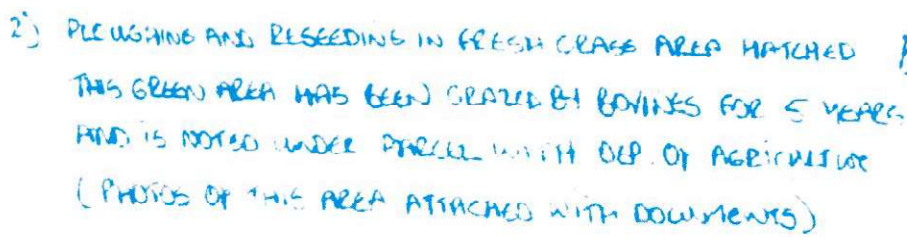 2) PLOUGHING AND RESEEDING IN FRESH GRASS AREA HATCHED
THIS GREEN AREA HAS BEEN GRAZED BY BOVINES FOR 5 YEARS
AND IS NOTED UNDER PARCEL WITH DEP. OF AGRICULTURE
(PHOTOS OF THIS AREA ATTACHED WITH DOCUMENTS)